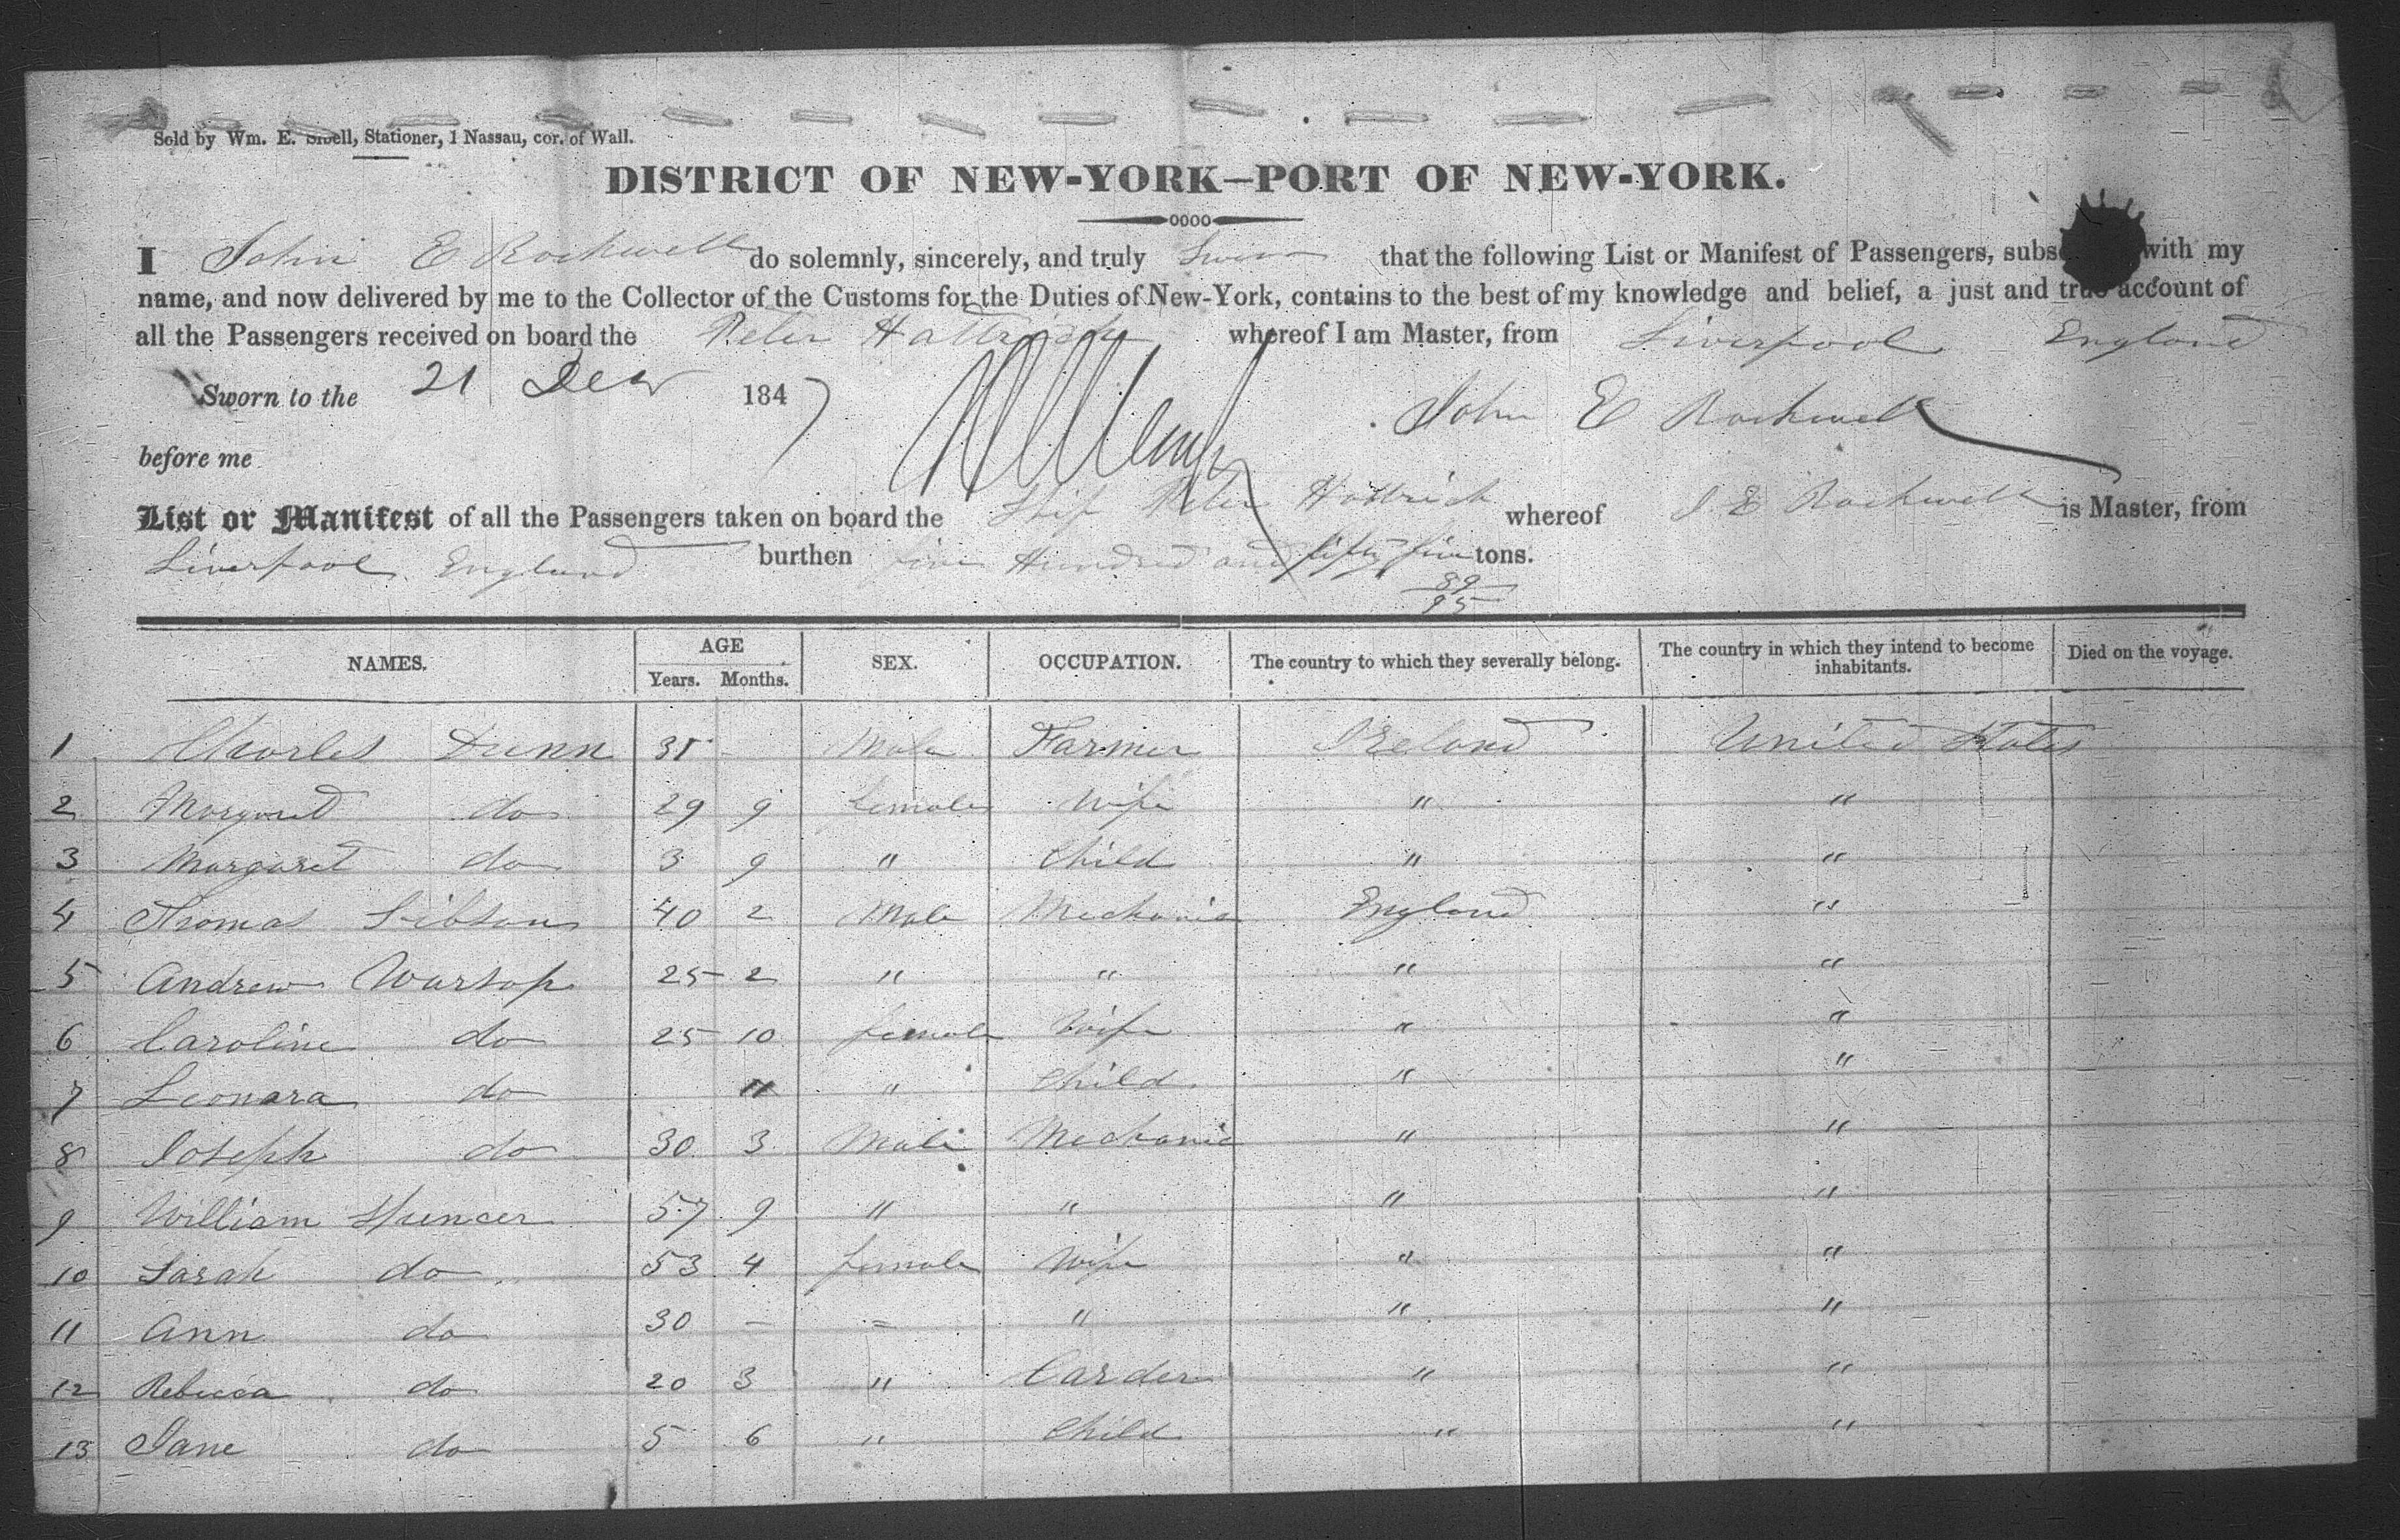 Sold by Wm. E. Sibell, Stationer, 1 Nassau, cor. of Wall.
DISTRICT OF NEW-YORK—PORT OF NEW-YORK.
I John E Rockwell do solemnly, sincerely, and truly Swear that the following List or Manifest of Passengers, subs with my
name, and now delivered by me to the Collector of the Customs for the Duties of New-York, contains to the best of my knowledge and belief, a just and true account of
all the Passengers received on board the Peter Hattrick whereof I am Master, from Liverpool England
Sworn to the 21 Decr 1847
John E Rockwell
before me
List or Manifest of all the Passengers taken on board the Ship Peter Hattrick whereof J. E Rockwell is Master, from
Liverpool England burthen five Hundred and fifty five tons.
89
95
NAMES. AGE SEX. OCCUPATION. The country to which they severally belong. The country in which they intend to become inhabitants. Died on the voyage.
Years. Months.
1 Charles Dunn 35 - Male Farmer Ireland United States
2 Margaret do 29 9 female Wife " "
3 Margaret do 3 9 " Child " "
4 Thomas Gibson 40 2 Male Mechanic England "
5 Andrew Warsop 25 2 " " " "
6 Caroline do 25 10 female Wife " "
7 Leonara do 11 " Child " "
8 Joseph do 30 3 Male Mechanic " "
9 William Spencer 57 9 " " " "
10 Sarah do 53 4 female Wife " "
11 Ann do 30 - " " " "
12 Rebecca do 20 3 " Carder " "
13 Jane do 5 6 " Child " "